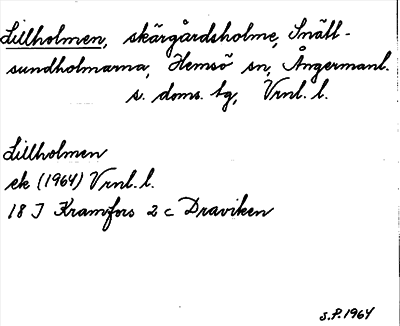 Lillholmen, skärgårdsholme, Snätt-
sundholmarna, Hemsö sn, Ångermanl.
s. doms. tg, Vrnl. l.
Lillholmen
ek (1964) Vrnl. l.
18 J Kramfors 2 c Draviken
S.P. 1964